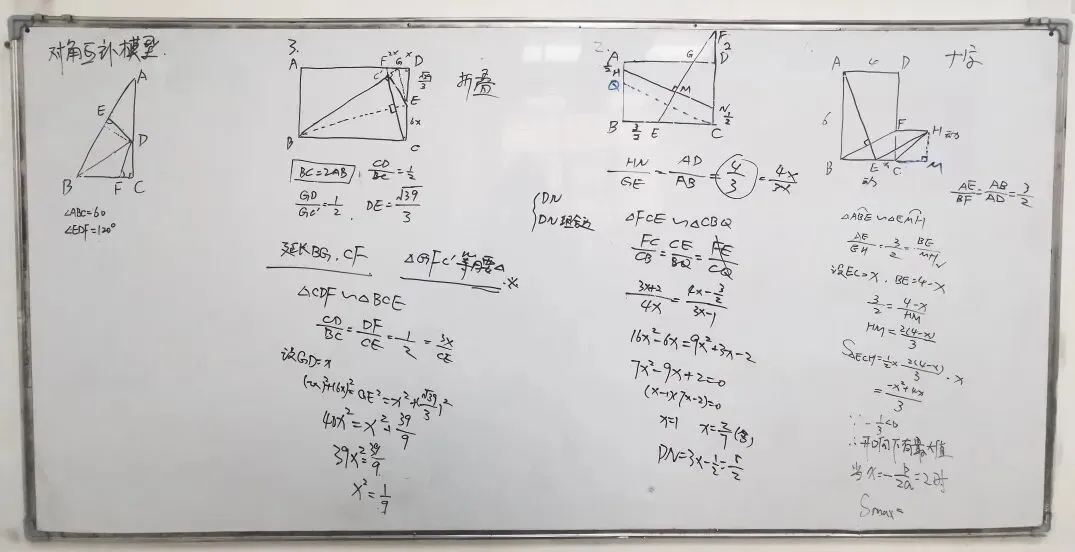 对角互补模型.
A
E
D
B
F
C
∠ABC=60
∠EDF=120°
3.
A
F
2x
G
x
D
C'
√39/3
E
6x
B
C
折叠
BC=2AB, CD/BC=1/2
GD/GC'=1/2, DE=√39/3
延长BG, CF
△GFC'等腰△.※
△CDF∽△BCE
CD/BC=DF/CE=1/2=3x/CE
设GD=x
40x²=x²+39/9
39x²=39/9
x²=1/9
2.
F
2
A
G
D
1/2
H
Q
M
N
1/2
B
3/2
E
C
HN/GE=AD/AB=4/3=4x/3x
DN
△FCE∽△CBQ
FC/CB=CE/BQ=FE/CQ
(3x+2)/4x=(4x-3/2)/(3x-1)
16x²-6x=9x²+3x-2
7x²-9x+2=0
(x-1)(7x-2)=0
x=1 x=2/7(舍)
DN=3x-1/2=5/2
十字
A
4
D
6
F
H
动
B
E
x
C
M
动
AE/BF=AB/AD=3/2
△ABE∽△EMH
AE/EH=3/2=BE/MH
设EC=x, BE=4-x
3/2=(4-x)/HM
HM=2(4-x)/3
S△ECH=1/2x·2(4-x)/3·x
=(-x²+4x)/3
∵-1/3<0
∴开口向下有最大值
当x=-b/2a=2时
Smax=